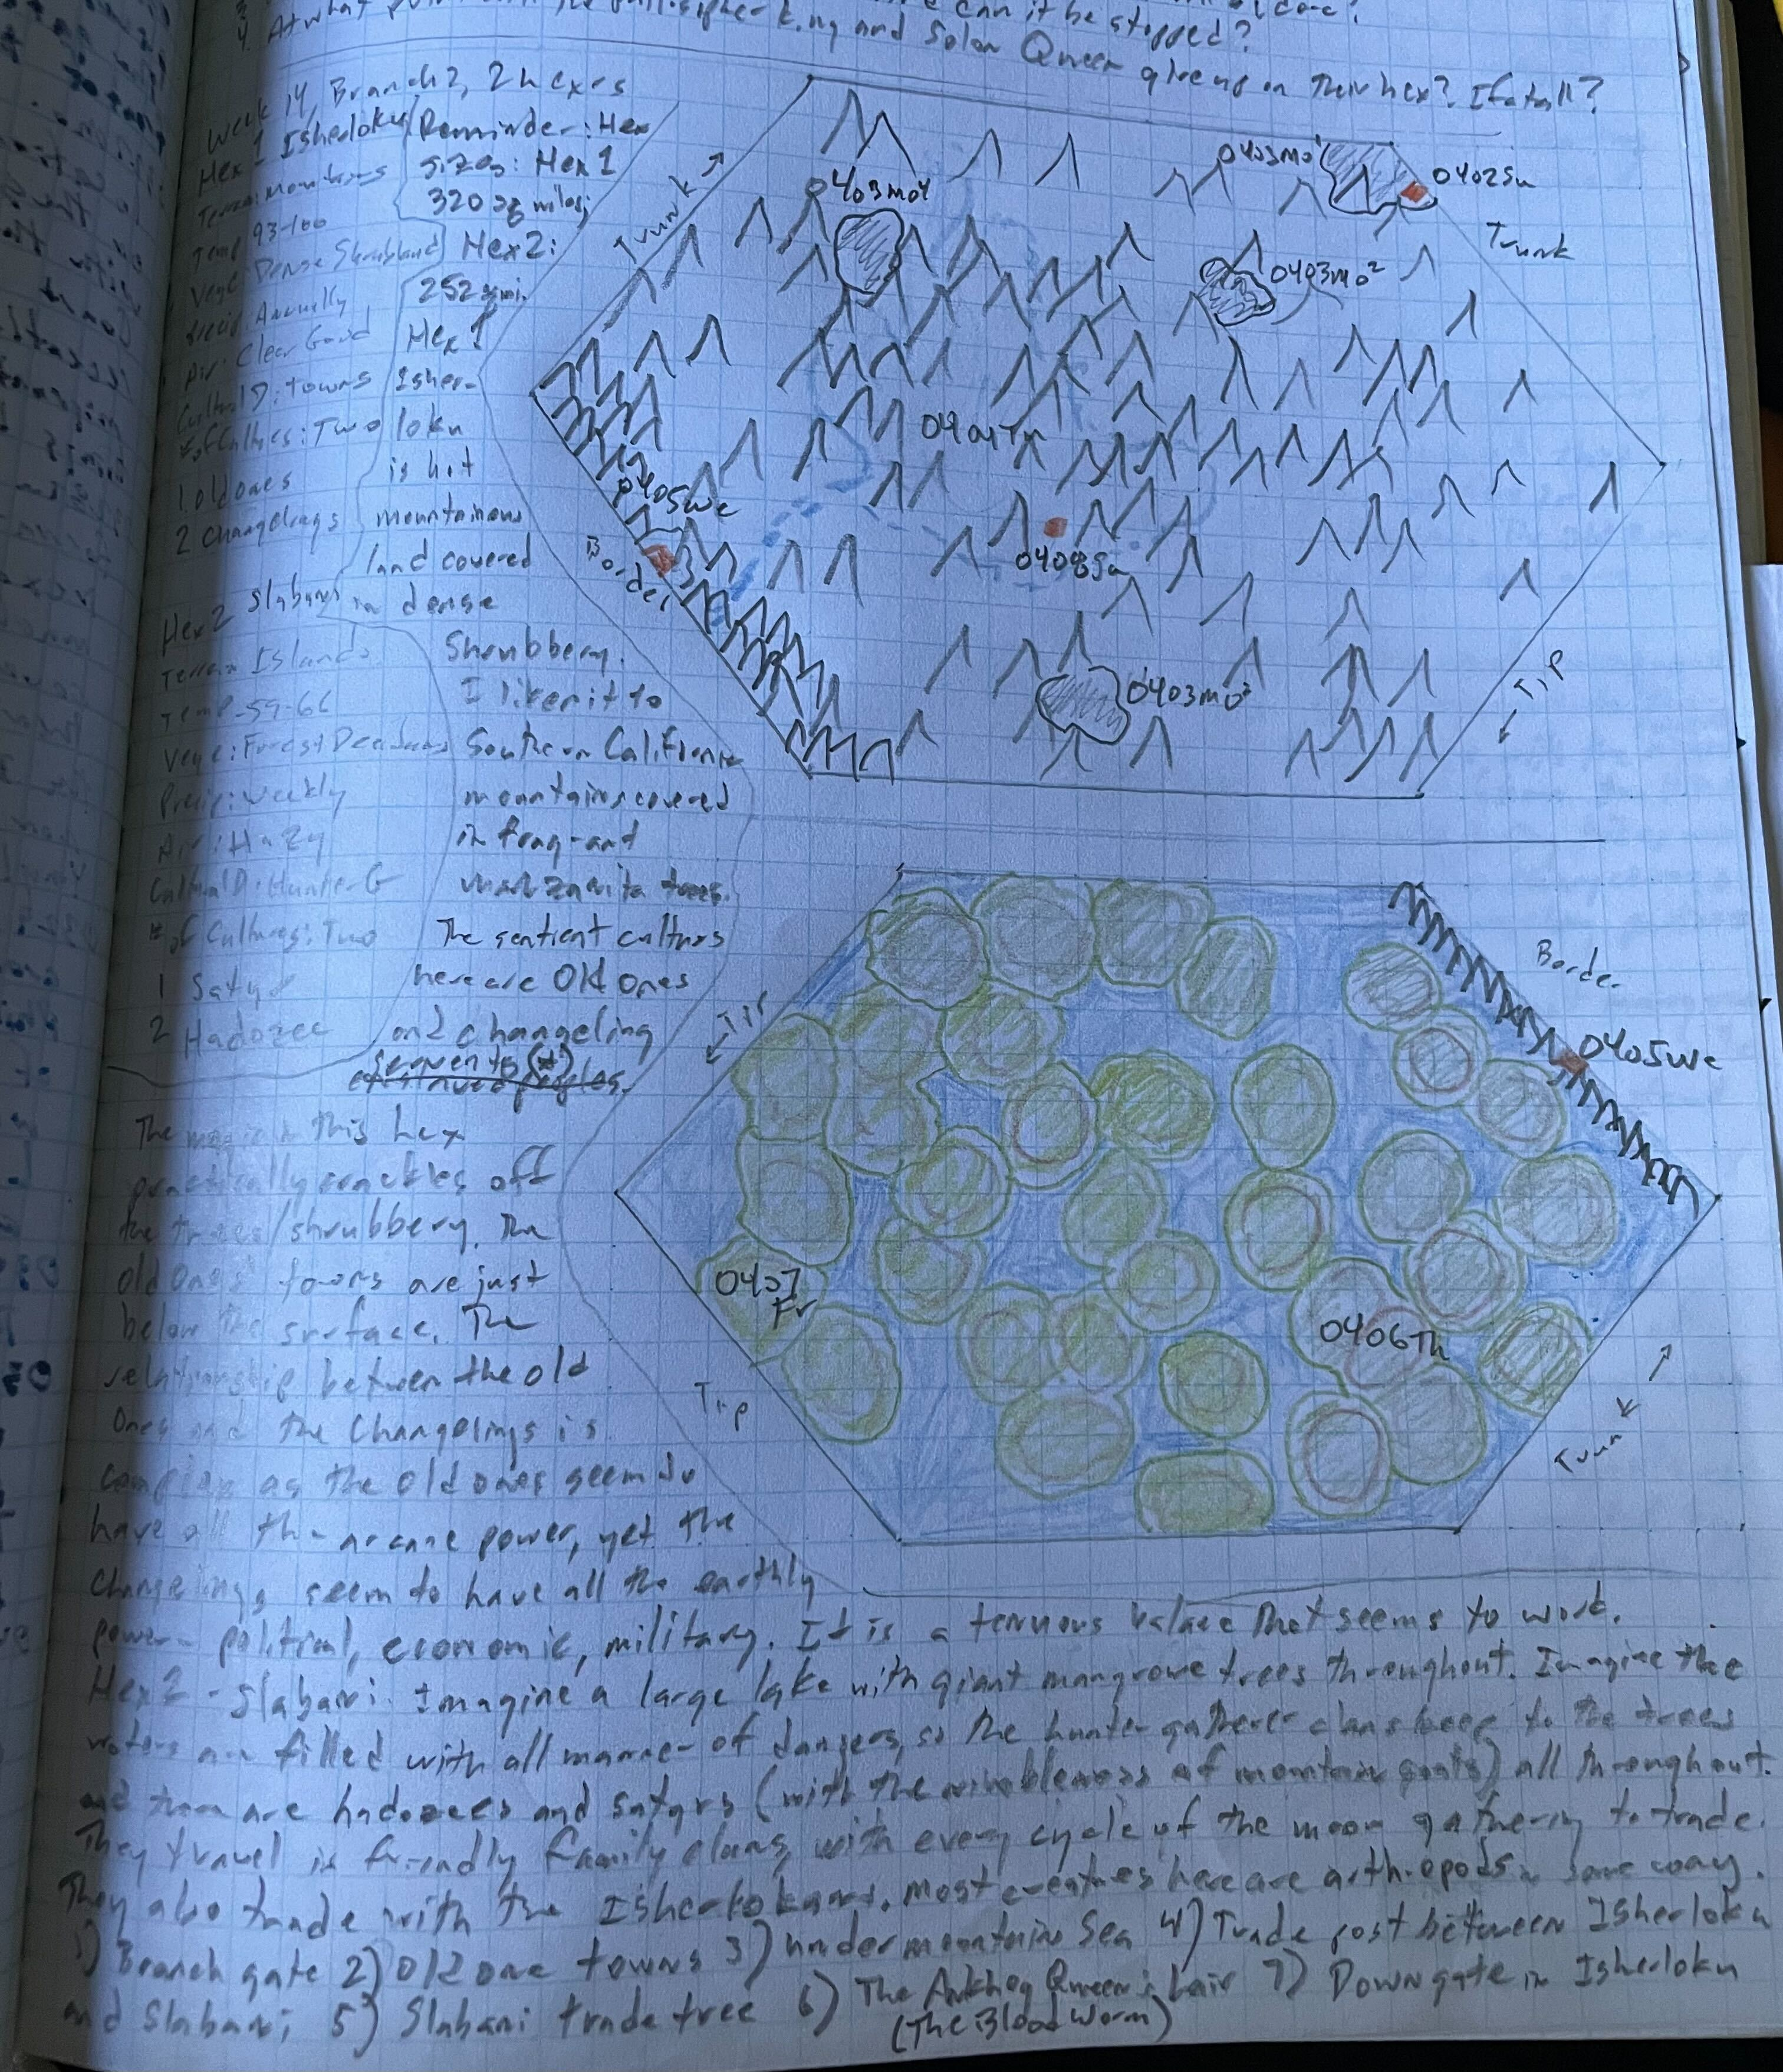 4. At what point can it be stopped?
and Solar Queen give up on their hex? If at all?
Week 14, Branch 2, 2 hexes
Hex 1 Isherloku
Terrain: Mountains
Temp 93-100
Vege: Dense Shrubland
Precip: Annually
Air: Clear Good
Cultural D: Towns
# of Cultures: Two
1. Old ones
2 Changelings
Hex 2 Slabani
Terrain Islands
Temp-59-66
Vege: Forest Deciduous
Precip: Weekly
Air: Hazy
Cultural D: Hunter-G
# of Cultures: Two
1 Satyr
2 Hadozee
Reminder: Hex
sizes: Hex 1
320 sq miles;
Hex 2:
252 sq mi.
Hex 1
Isher-
loku
is hot
mountainous
land covered
in dense
Shrubbery.
I liken it to
Southern California
mountains covered
in fragrant
manzanita trees.
The sentient cultures
here are Old Ones
and changeling
servants (#)
The magic in this hex
practically crackles off
the trees/shrubbery. The
old Ones' towns are just
below the surface. The
relationship between the old
Ones and the Changelings is
complex as the old ones seem to
have all the arcane power, yet the
Changelings seem to have all the earthly
power- political, economic, military. It is a tenuous balance that seems to work.
Hex 2 - Slabani. Imagine a large lake with giant mangrove trees throughout. Imagine the
waters are filled with all manner of dangers, so the hunter gatherer clans keep to the trees
and there are hadozees and satyrs (with the nimbleness of mountain goats) all throughout.
They travel in friendly family clans, with every cycle of the moon gathering to trade.
They also trade with the Isherlokans. Most creatures here are arthropods in some way.
1) Branch gate 2) Old one towns 3) under mountain Sea 4) Trade post between Isherloku
and Slabani; 5) Slabani trade tree 6) The Ankheg Queen's lair 7) Down gate in Isherloku
(The Blood Worm)
Trunk
0403mo4
0403mo1
0402Su
Trunk
0403mo2
0404Th
0405We
Border
0408Sa
0403mo3
Tip
Border
0405We
Tip
0407
Fr
0406Th
Tip
Trunk